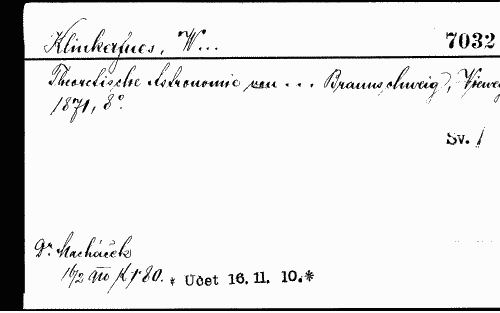 Klinkerfues, W... 7032
Theoretische Astronomie von ... Braunschweig, Vieweg
1871, 8°.
Sv. 1
Dr. Macháček
16/2 K 1·80. * Učet 16. 11. 10.*